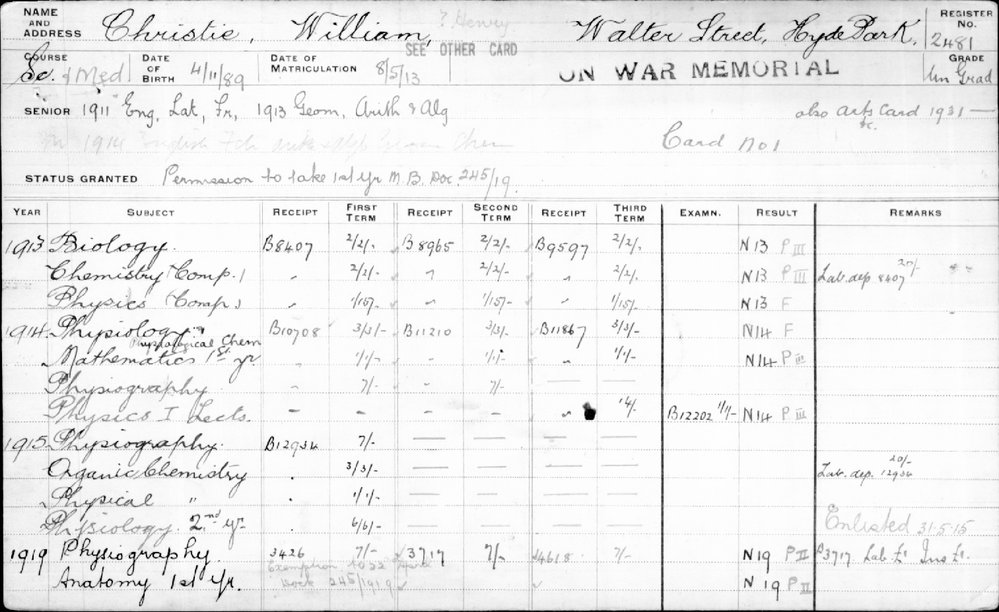 NAME AND ADDRESS Christie, William, ? Henry Walter Street, Hyde Park, REGISTER No. 2481
SEE OTHER CARD
COURSE Sc. & Med DATE OF BIRTH 4/11/89 DATE OF MATRICULATION 8/5/13 ON WAR MEMORIAL GRADE Un Grad
SENIOR 1911 Eng, Lat, Fr, 1913 Geom, Arith & Alg also Arts Card 1931 &c.
1914 English Card No 1
STATUS GRANTED Permission to take 1st yr M.B. Doc. 245/19.
YEAR SUBJECT RECEIPT FIRST TERM RECEIPT SECOND TERM RECEIPT THIRD TERM EXAMN. RESULT REMARKS
1913 Biology. B8407 2/2/- B8965 2/2/- B9597 2/2/- N13 P III
Chemistry Comp. 1 " 2/2/- " 2/2/- " 2/2/- N13 P III Lab. dep 8407 20/-
Physics Comp 1 " 1/15/- " 1/15/- " 1/15/- N13 F
1914 Physiology B10708 3/3/- B11210 3/3/- B11867 3/3/- N14 F
Physiological Chem
Mathematics 1st yr. " 1/1/- " 1/1 " 1/1/- N14 P III
Physiography " 7/- " 7/- — —
Physics I Lects. - - - - " 14/- B12202 1/1/- N14 P III
1915 Physiography. B12934 7/- — — — —
Organic Chemistry . 3/3/- — — — — Lab. dep. 12934 20/-
Physical " . 1/1/- — — — —
Physiology 2nd yr. . 6/6/- Enlisted 31-5-15
1919 Physiography. 3426 7/- 3717 7/- 4618 7/- N19 P II 3717 Lab £1 Ins £1.
Anatomy 1st Yr. Exemption N19 P II
Dock 245/1919